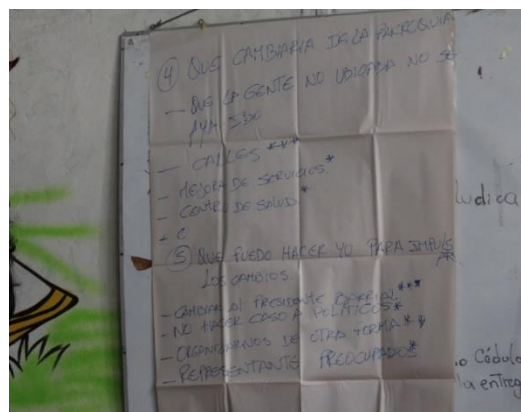 ④ QUE CAMBIARIA DE LA PARROQUIA
— QUE LA GENTE NO UBICADA NO SE
— CALLES ***
— MEJORA DE SERVICIOS *
— CENTRO DE SALUD *
+ C
⑤ QUE PUEDO HACER YO PARA IMPULS
LOS CAMBIOS
- CAMBIAR AL PRESIDENTE BARRIAL ***
- NO HACER CASO A POLITICOS *
- ORGANIZARNOS DE OTRA FORMA **
- REPRESENTANTE PREOCUPADOS *
ludica
o Cédula
la entreg